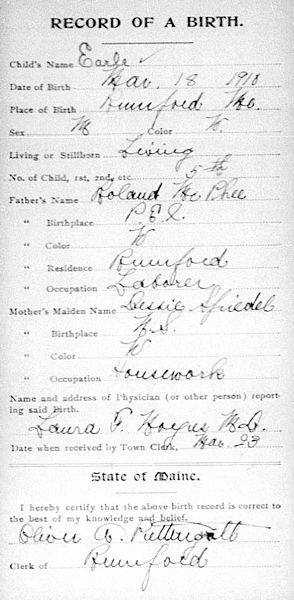 RECORD OF A BIRTH.
Child's Name Earle
Date of Birth Mar. 18 1910
Place of Birth Rumford Me.
Sex M Color W.
Living or Stillborn Living
No. of Child, 1st, 2nd, etc. 5th
Father's Name Roland Mc Phee
" Birthplace P.E.I.
" Color W
" Residence Rumford
" Occupation Laborer
Mother's Maiden Name
" Birthplace N.S.
" Color W
" Occupation Housework
Name and address of Physician (or other person) report-
ing said Birth.
Laura F. M.D.
Date when received by Town Clerk, Mar. 23
State of Maine.
I hereby certify that the above birth record is correct to
the best of my knowledge and belief.
Oliver A. Pettengill
Clerk of Rumford